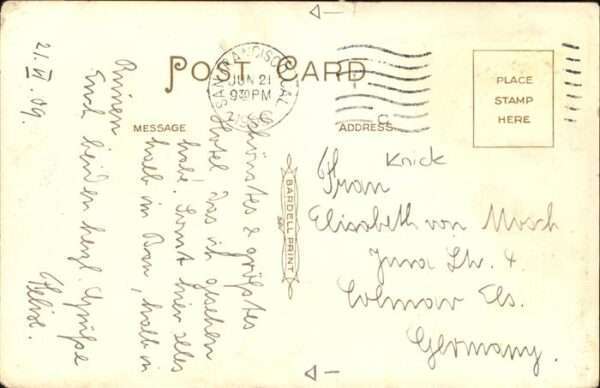 POST CARD
SAN FRANCISCO, CAL.
JUN 21
930 PM
1909
MESSAGE
ADDRESS
PLACE
STAMP
HERE
BARDELL PRINT
SF
Schönstes & größtes
Hotel das ich gesehen
habe! Sonst hier alles
halb im Bau, halb in
Ruinen
Euch beiden herzl. Grüße
Felix.
21. VI. 09.
Knick
Frau
Elisabeth von Mosch
Jura Str. 4
Colmar Els.
Germany.